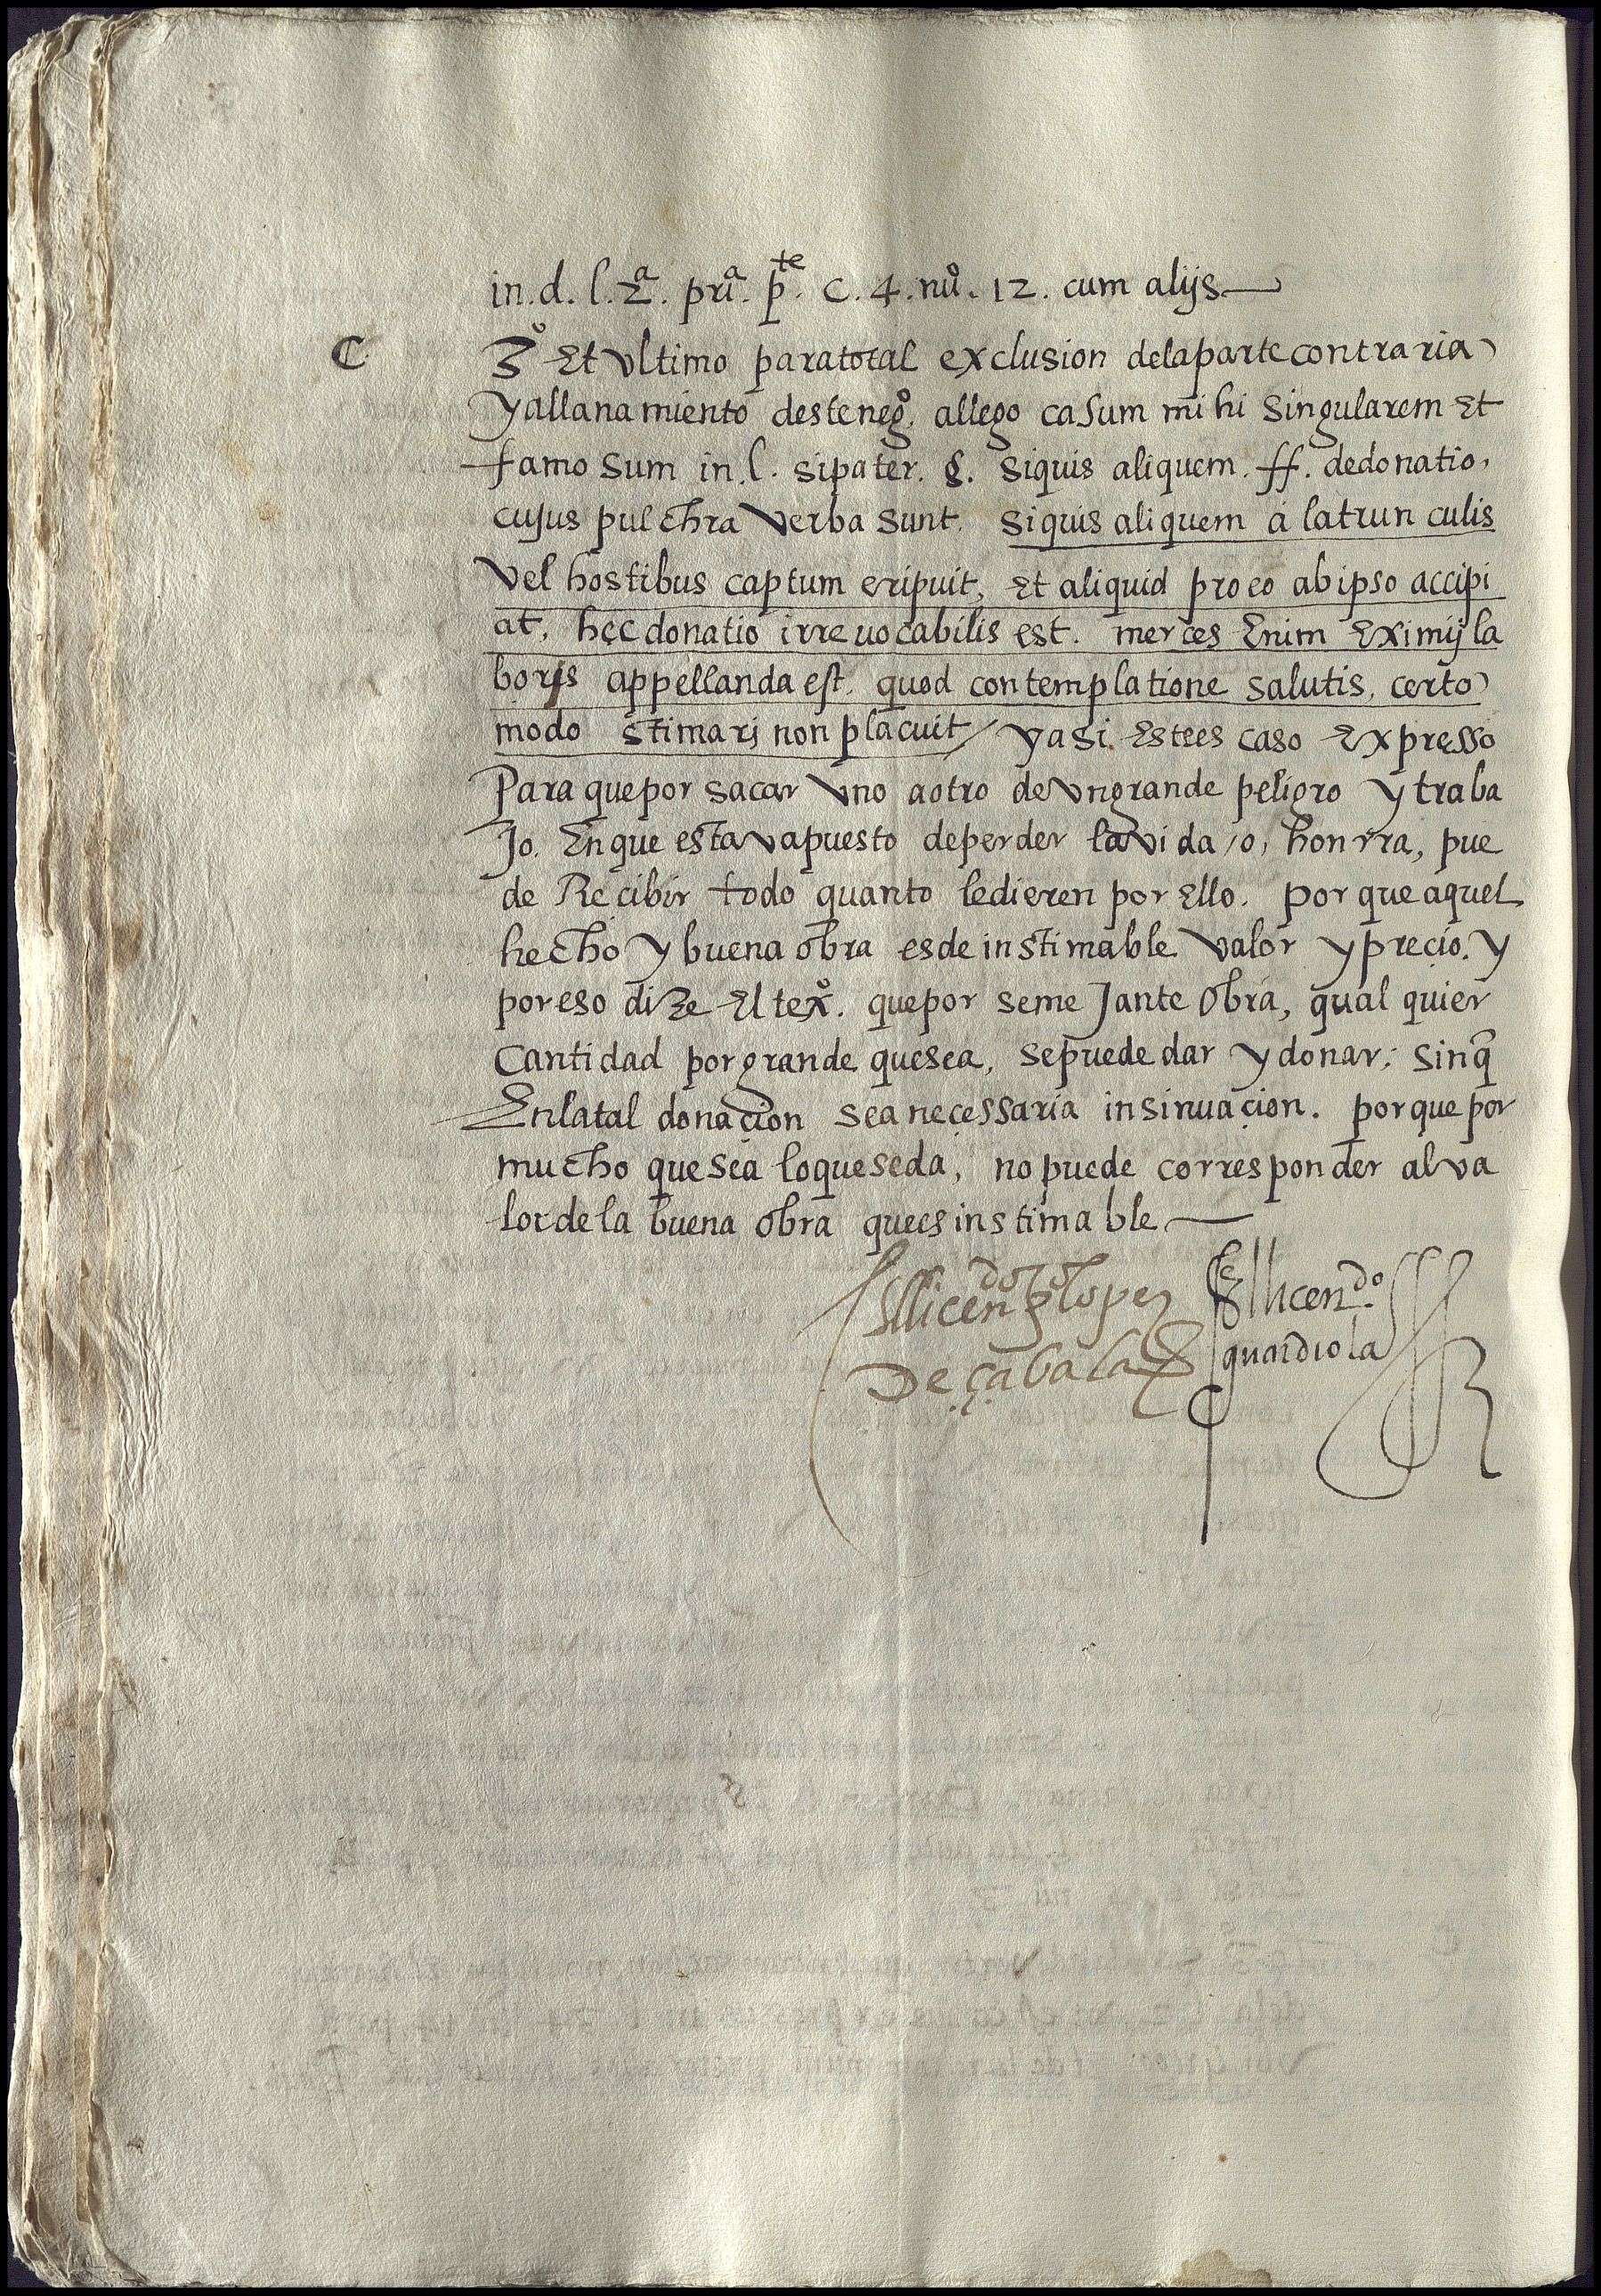 in. d. l. 2ª. priª. pte. c. 4. nuº. 12. cum alijs
C 3º Et vltimo para total exclusion dela parte contraria
y allanamiento deste negº. allego casum mihi singularem Et
famosum in. l. si pater. §. siquis aliquem. ff. de donatio,
cujus pulchra verba sunt. siquis aliquem à latrunculis
vel hostibus captum eripuit, Et aliquid pro eo ab ipso accipi
at, hęc donatio irreuocabilis est. merces Enim Eximij la
boris appellanda est. quod contemplatione salutis, certo
modo Estimari non placuit / y asi Este es caso Expresso
Para que por sacar vno a otro de vn grande peligro y traba
Jo. En que estava puesto de perder la vida, o, honrra, pue
de Recibir todo quanto le dieren por Ello. por que aquel
hecho y buena obra es de instimable valor y precio. y
por eso dize El texº. que por semeJante obra, qual quier
Cantidad por grande que sea, se puede dar y donar; sin q̃
En la tal donaçion sea neçessaria insinuaçion. porque por
mucho que sea lo que se da, no puede corresponder al va
lor de la buena obra que es instimable
El licendo gº lopez
De çabala
El licendo.
guardiola